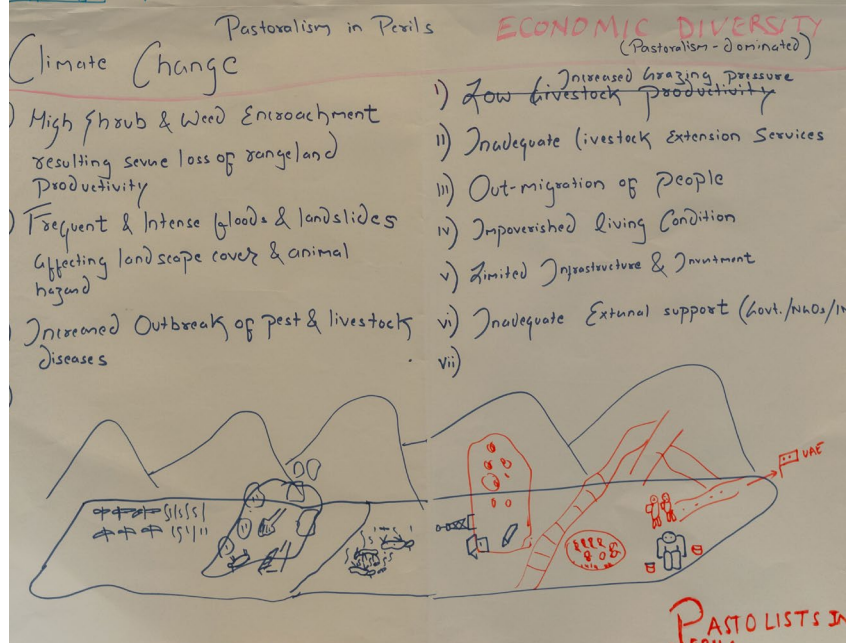 Pastoralism in Perils
Climate Change
) High Shrub & Weed Encroachment
resulting sevue loss of rangeland
Productivity
) Frequent & Intense floods & landslides
affecting landscape cover & animal
hazard
) Increased Outbreak of pest & livestock
diseases
)
ECONOMIC DIVERSITY
(Pastoralism-dominated)
Increased Grazing pressure
i) Low Livestock Productivity
ii) Inadequate Livestock Extension Services
iii) Out-migration of People
iv) Impoverished living Condition
v) Limited Infrastructure & Invntment
vi) Inadequate Extunal support (Govt./NGOs/IN
vii)
UAE
PASTOLISTS IN